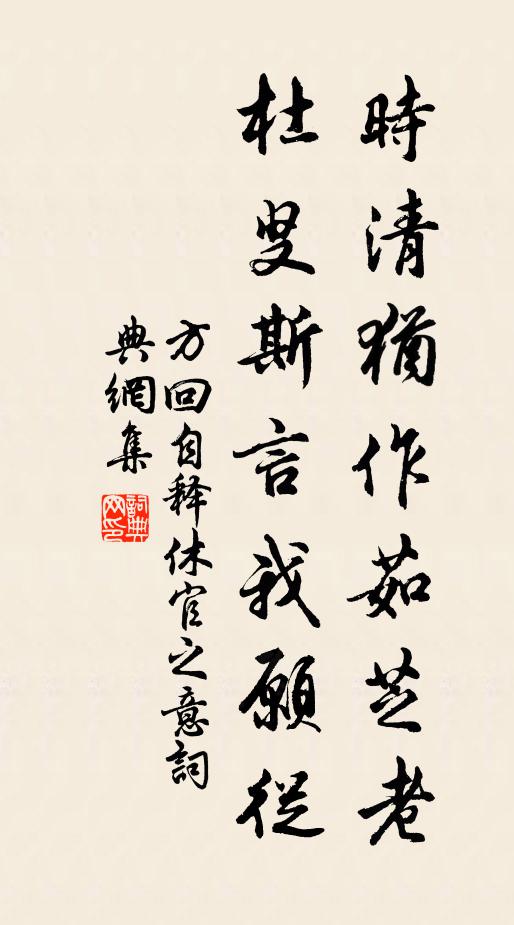 時清猶作茹芝老
杜叟斯言我願從
方回自释休官之意詞
典網集
詞典
网印